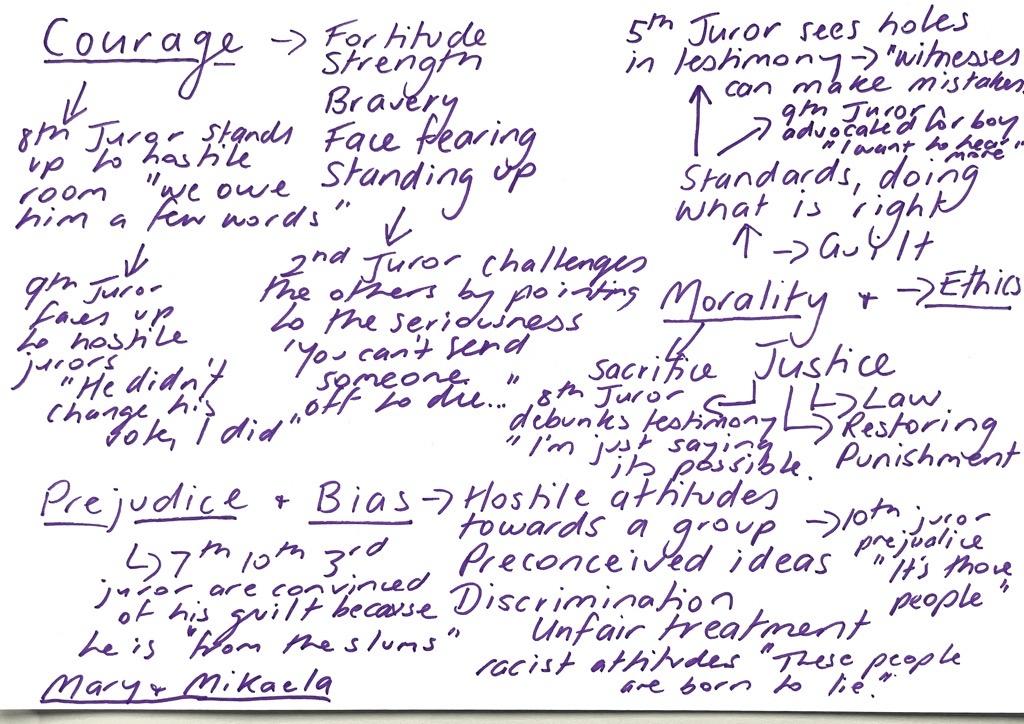 Courage → Fortitude
Strength
Bravery
Face fearing
Standing up
8th Juror stands
up to hostile
room "we owe
him a few words"
9th Juror
faces up
to hostile
jurors
"He didn't
change his
vote, I did"
2nd Juror challenges
the others by pointing
to the seriousness
"You can't send
someone
off to die..."
5th Juror sees holes
in testimony → "witnesses
can make mistakes
9th Juror
advocated for boy
"I want to hear"
more
Standards, doing
what is right
→ Guilt
Morality + → Ethics
Sacrifice Justice
8th Juror
debunks testimony
"I'm just saying
its possible.
Law
Restoring
Punishment
Prejudice + Bias → Hostile attitudes
towards a group → 10th juror
prejudice
"It's those
people"
Preconceived ideas
Discrimination
Unfair treatment
racist attitudes "These people
are born to lie."
7th 10th 3rd
juror are convinced
of his guilt because
he is "from the slums"
Mary + Mikaela